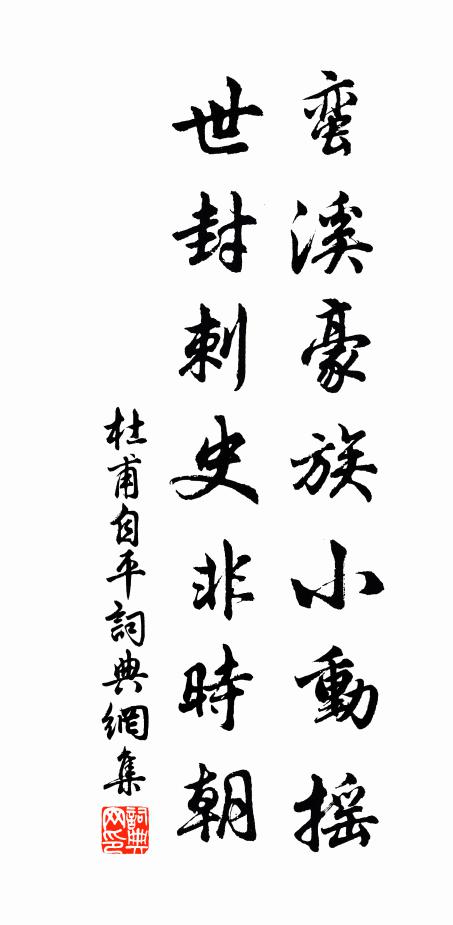 蛮溪豪族小動摇
世封刺史非時朝
杜甫自平詞典網集
詞典网印